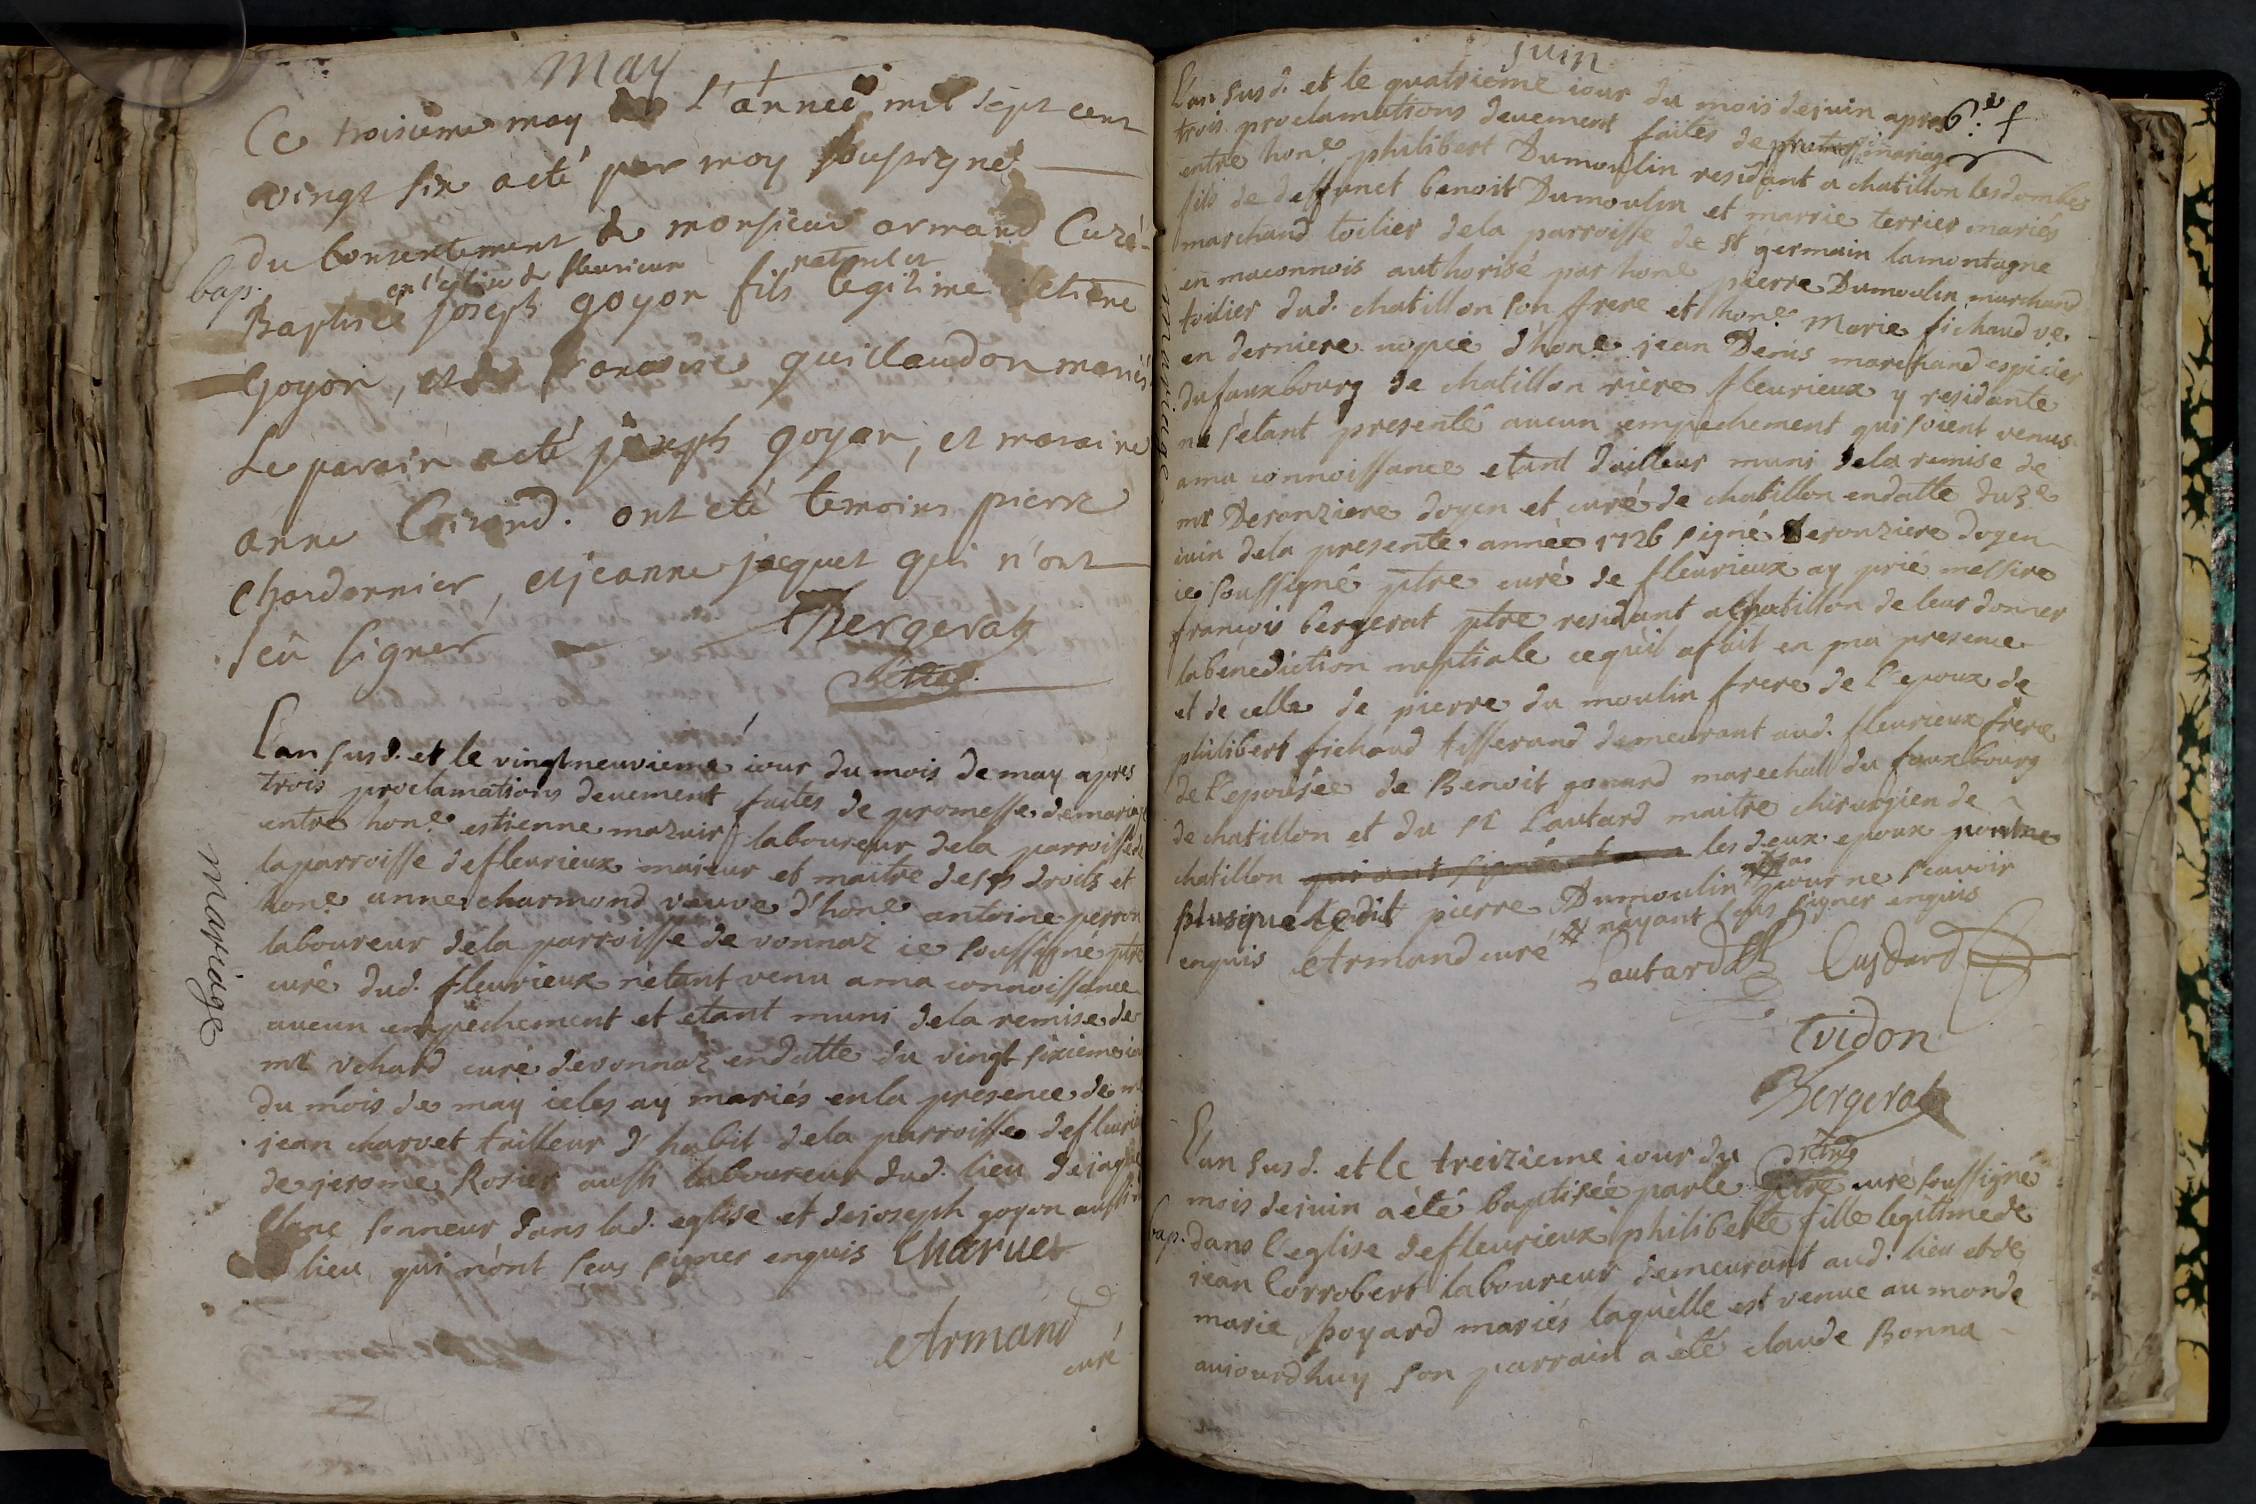 may
Ce troisieme may L'année mil sept cent
vingt six a eté par moy soussigné
du Consentement de monsieur armand Curé
bap.
en l'eglise de fleurieux naturel et
Baptisé joseph goyon fils legitime etiene
goyon, et de francoise guillaudon mariés
Le parain a eté joseph goyon, et maraine
anne Coirand. ont eté temoins pierre
Chardonnier, et jeanne jaquet qui n'ont
sçu signer Bergerat
ptre
mariage
L'an susd. et le vingtneuvieme iour du mois de may apres
trois proclamations deuement faites de promesse de mariage
entre hone. estienne mazuir laboureur dela parroisse de
la parroisse de fleurieux majeur et maitre deses droits et
hone anne charmond veuve d'hone. antoine perron
laboureur dela parroisse de vonnaz ie soussigne ptre
curé dud. fleurieux n'etant venu a ma connoissance
aucun empechement et etant muni dela remise de
mr vchard curé de vonnaz en datte du vingt sixieme iour
du mois de may ie les ay mariés en la presence de mr
jean charvet tailleur d'habit dela parroisse de fleurieux
de jerome Rosier aussi laboureur dud. lieu de jaque
blanc sonneur dans lad. eglise et de joseph goyon aussi
lieu qui n'ont sçeus signer enquis Charuet
Armand
curé
juin
6.e f
mariage
L'an susd. et le quatrieme iour du mois de juin apres
trois proclamations deuement faites de mariage
entre hone. philibert Dumoulin residant a chatillon les dombes
fils de deffunct benoit Dumoulin et marrie terrier mariés
marchand toilier dela parroisse de st germain lamontagne
en maconnois authorisé par hone pierre Dumoulin marchand
toilier dud. chatillon son frere et hone. Marie fichaud ve.
en derniere nopce d'hone. jean Denis marchand espicier
du fauxbourg de chatillon riere fleurieux y residante
ne s'étant presenté aucun empechement qui soient venus
a ma connoissance etant d'ailleur muni dela remise de
mr Deronziere doyen et curé de chatillon en datte du 3e
iuin dela presente année 1726 signé Deronziere doyen
ie soussigné ptre curé de fleurieux ay prié messire
françois bergerat ptre residant a chatillon de leur donner
la benediction nuptiale ce qu'il a fait en ma presence
et de celle de pierre du moulin frere de l'epoux de
philibert fichaud tisserand demeurant aud. fleurieux frere
de l'epousée de Benoit gonard marechal du fauxbourg
de chatillon et du sr Lautard maitre chirurgien de
chatillon qui ont signé les deux epoux non
plus que ledit pierre Dumoulin pour ne scavoir
enquis Armand curé # n'ayant sçus signer enquis
Lautard
Tvidon
Bergerat
ptre
bap.
L'an susd. et le treizieme iour du
mois de juin a été baptisée par le ptre curé soussigné
dans l'eglise de fleurieux philiberte fille legitime de
jean Corrobert laboureur demeurant aud. lieu et de
marie poyard mariés laquelle est venue au monde
aujourdhuy son parrain a été claude Bonna